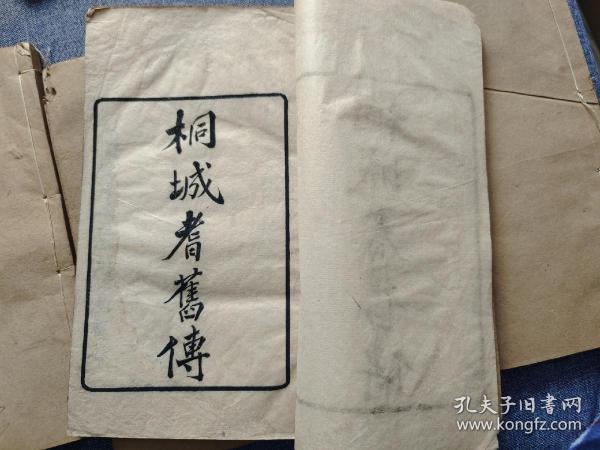 桐城耆舊傳
孔夫子旧書网
www.kongfz.com